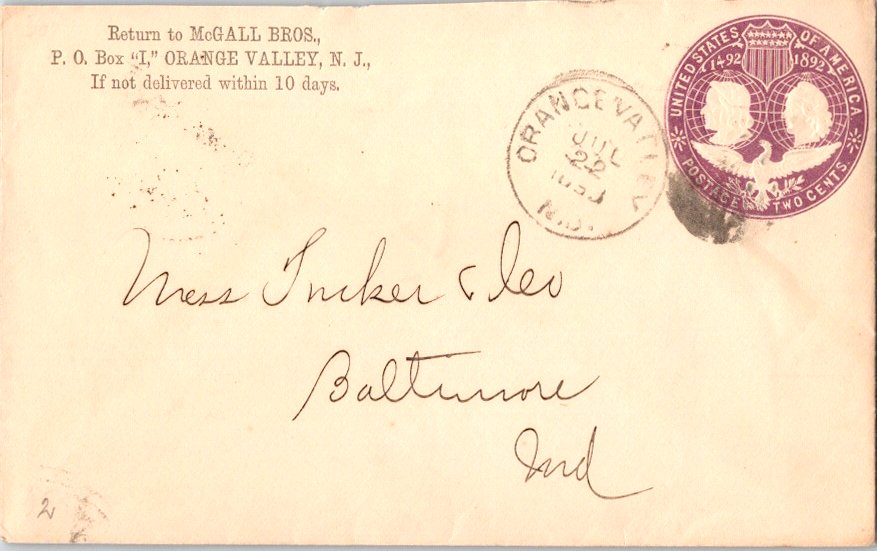 Return to McGALL BROS.,
P. O. Box "I," ORANGE VALLEY, N. J.,
If not delivered within 10 days.
UNITED STATES OF AMERICA
1492 1892
POSTAGE TWO CENTS
ORANGE VALLEY
JUL
22
N.J.
Mess Tucker & Co
Baltimore
Md
2